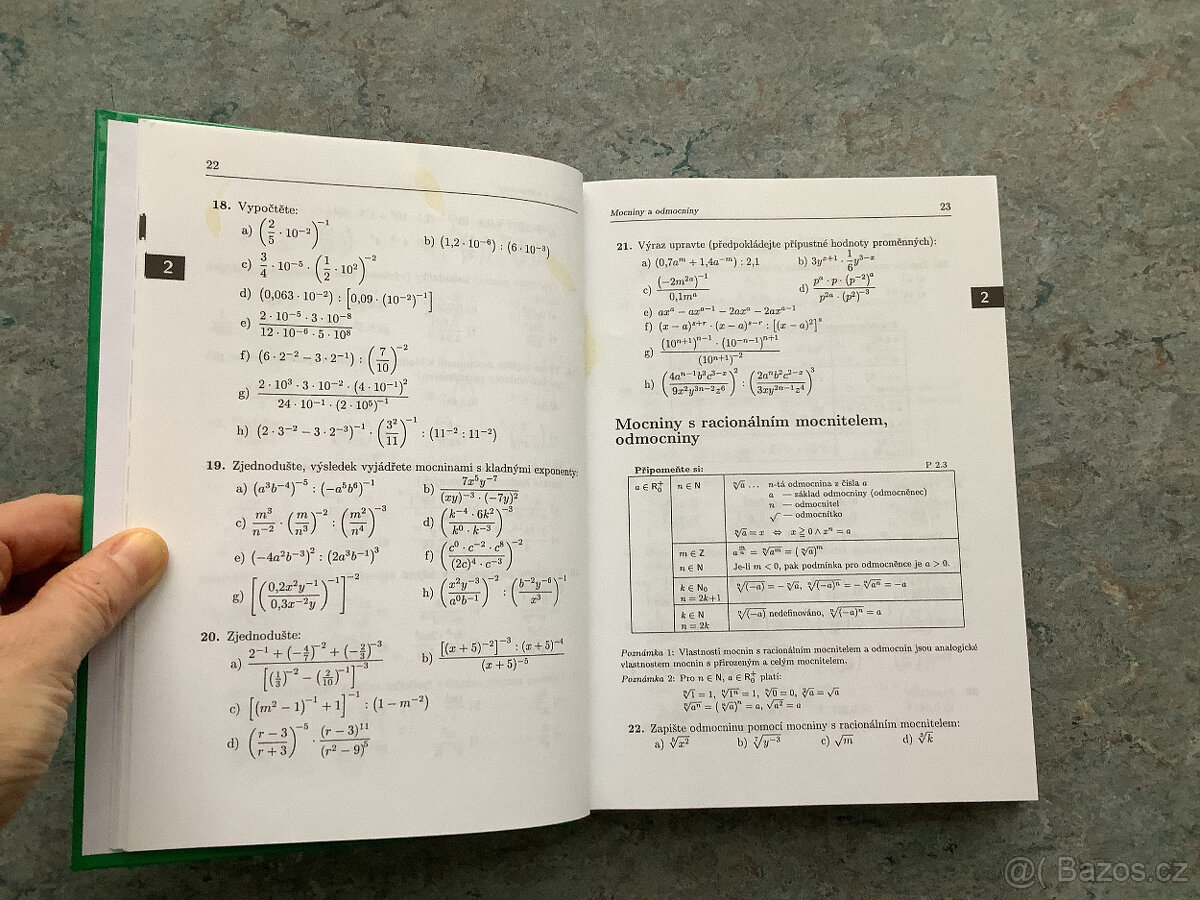 22
18. Vypočtěte:
a) (2/5 · 10⁻²)⁻¹ b) (1,2 · 10⁻⁶) : (6 · 10⁻³)
c) 3/4 · 10⁻⁵ · (1/2 · 10²)⁻²
2
d) (0,063 · 10⁻²) : [0,09 · (10⁻²)⁻¹]
e) (2 · 10⁻⁵ · 3 · 10⁻⁸)/(12 · 10⁻⁶ · 5 · 10⁸)
f) (6 · 2⁻² − 3 · 2⁻¹) : (7/10)⁻²
g) (2 · 10³ · 3 · 10⁻² · (4 · 10⁻¹)²)/(24 · 10⁻¹ · (2 · 10⁵)⁻¹)
h) (2 · 3⁻² − 3 · 2⁻³)⁻¹ · (3²/11)⁻¹ : (11⁻² : 11⁻²)
19. Zjednodušte, výsledek vyjádřete mocninami s kladnými exponenty:
a) (a³b⁻⁴)⁻⁵ : (−a⁵b⁶)⁻¹ b) (7x⁵y⁻⁷)/((xy)⁻³ · (−7y)²)
c) m³/n⁻² · (m/n³)⁻² : (m²/n⁴)⁻³ d) ((k⁻⁴ · 6k²)/(k⁰ · k⁻³))⁻³
e) (−4a²b⁻³)² : (2a³b⁻¹)³ f) ((c⁰ · c⁻² · c⁸)/((2c)⁴ · c⁻³))⁻²
g) [((0,2x²y⁻¹)/(0,3x⁻²y))⁻¹]⁻² h) ((x²y⁻³)/(a⁰b⁻¹))⁻² : ((b⁻²y⁻⁶)/x³)⁻¹
20. Zjednodušte:
a) (2⁻¹ + (−4/7)⁻² + (−2/3)⁻³)/[(1/3)⁻² − (2/10)⁻¹]⁻³ b) ([(x + 5)⁻²]⁻³ : (x + 5)⁻⁴)/(x + 5)⁻⁵
c) [(m² − 1)⁻¹ + 1]⁻¹ : (1 − m⁻²)
d) ((r − 3)/(r + 3))⁻⁵ · (r − 3)¹¹/(r² − 9)⁵
Mocniny a odmocniny 23
21. Výraz upravte (předpokládejte přípustné hodnoty proměnných):
a) (0,7aᵐ + 1,4a⁻ᵐ) : 2,1 b) 3yˣ⁺¹ · 1/6 y³⁻ˣ
c) (−2m²ᵃ)⁻¹/0,1mᵃ d) (pᵃ · p · (p⁻²)ᵃ)/(p²ᵃ · (p²)⁻³)
2
e) axᵃ − axᵃ⁻¹ − 2axᵃ − 2axᵃ⁻¹
f) (x − a)ˢ⁺ʳ · (x − a)ˢ⁻ʳ : [(x − a)²]ˢ
g) ((10ⁿ⁺¹)ⁿ⁻¹ · (10⁻ⁿ⁻¹)ⁿ⁺¹)/(10ⁿ⁺¹)⁻²
h) ((4aⁿ⁻¹b³c³⁻ˣ)/(9x²y³ⁿ⁻²z⁶))² : ((2aⁿb²c²⁻ˣ)/(3xy²ⁿ⁻¹z⁴))³
Mocniny s racionálním mocnitelem,
odmocniny
Připomeňte si: P 2.3
a ∈ R₀⁺ n ∈ N ⁿ√a … n-tá odmocnina z čísla a
a — základ odmocniny (odmocněnec)
n — odmocnitel
√ — odmocnítko
ⁿ√a = x ⇔ x ≧ 0 ∧ xⁿ = a
m ∈ Z a^(m/n) = ⁿ√aᵐ = (ⁿ√a)ᵐ
n ∈ N Je-li m < 0, pak podmínka pro odmocněnce je a > 0.
k ∈ N₀ ⁿ√(−a) = −ⁿ√a, ⁿ√(−a)ⁿ = −ⁿ√aⁿ = −a
n = 2k+1
k ∈ N ⁿ√(−a) nedefinováno, ⁿ√(−a)ⁿ = a
n = 2k
Poznámka 1: Vlastnosti mocnin s racionálním mocnitelem a odmocnin jsou analogické
vlastnostem mocnin s přirozeným a celým mocnitelem.
Poznámka 2: Pro n ∈ N, a ∈ R₀⁺ platí:
ⁿ√1 = 1, ⁿ√1ⁿ = 1, ⁿ√0 = 0, ²√a = √a
ⁿ√aⁿ = (ⁿ√a)ⁿ = a, √a² = a
22. Zapište odmocninu pomocí mocniny s racionálním mocnitelem:
a) ⁵√x² b) ⁷√y⁻³ c) √m d) ³√k
@( Bazos.cz